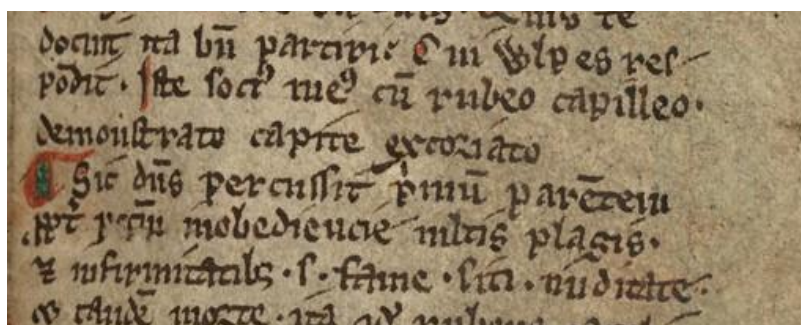 Quis te
docuit ita bñ partiri. Cui wlpes res-
põdit. Iste soci⁹ me⁹ cū rubeo capilleo.
demonstrato capite excoriato
¶ Sic dñs percussit pͥmū parētem
inobediencie mltis plagis.
⁊ infirmitatibꝫ. s. fame. siti. nuditate.
tandē morte. ita